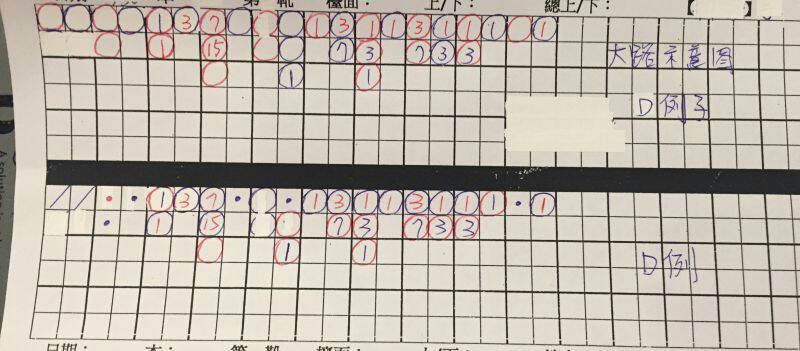 第 靴 檯面： 上/下： 總上/下：
1 3 7 1 3 1 1 3 1 1 1 1
1 15 7 3 7 3 3
1 1
大路示意图
D例子
1 3 7 1 3 1 1 3 1 1 1 1
1 15 7 3 7 3 3
1 1
D例
日期： 本：